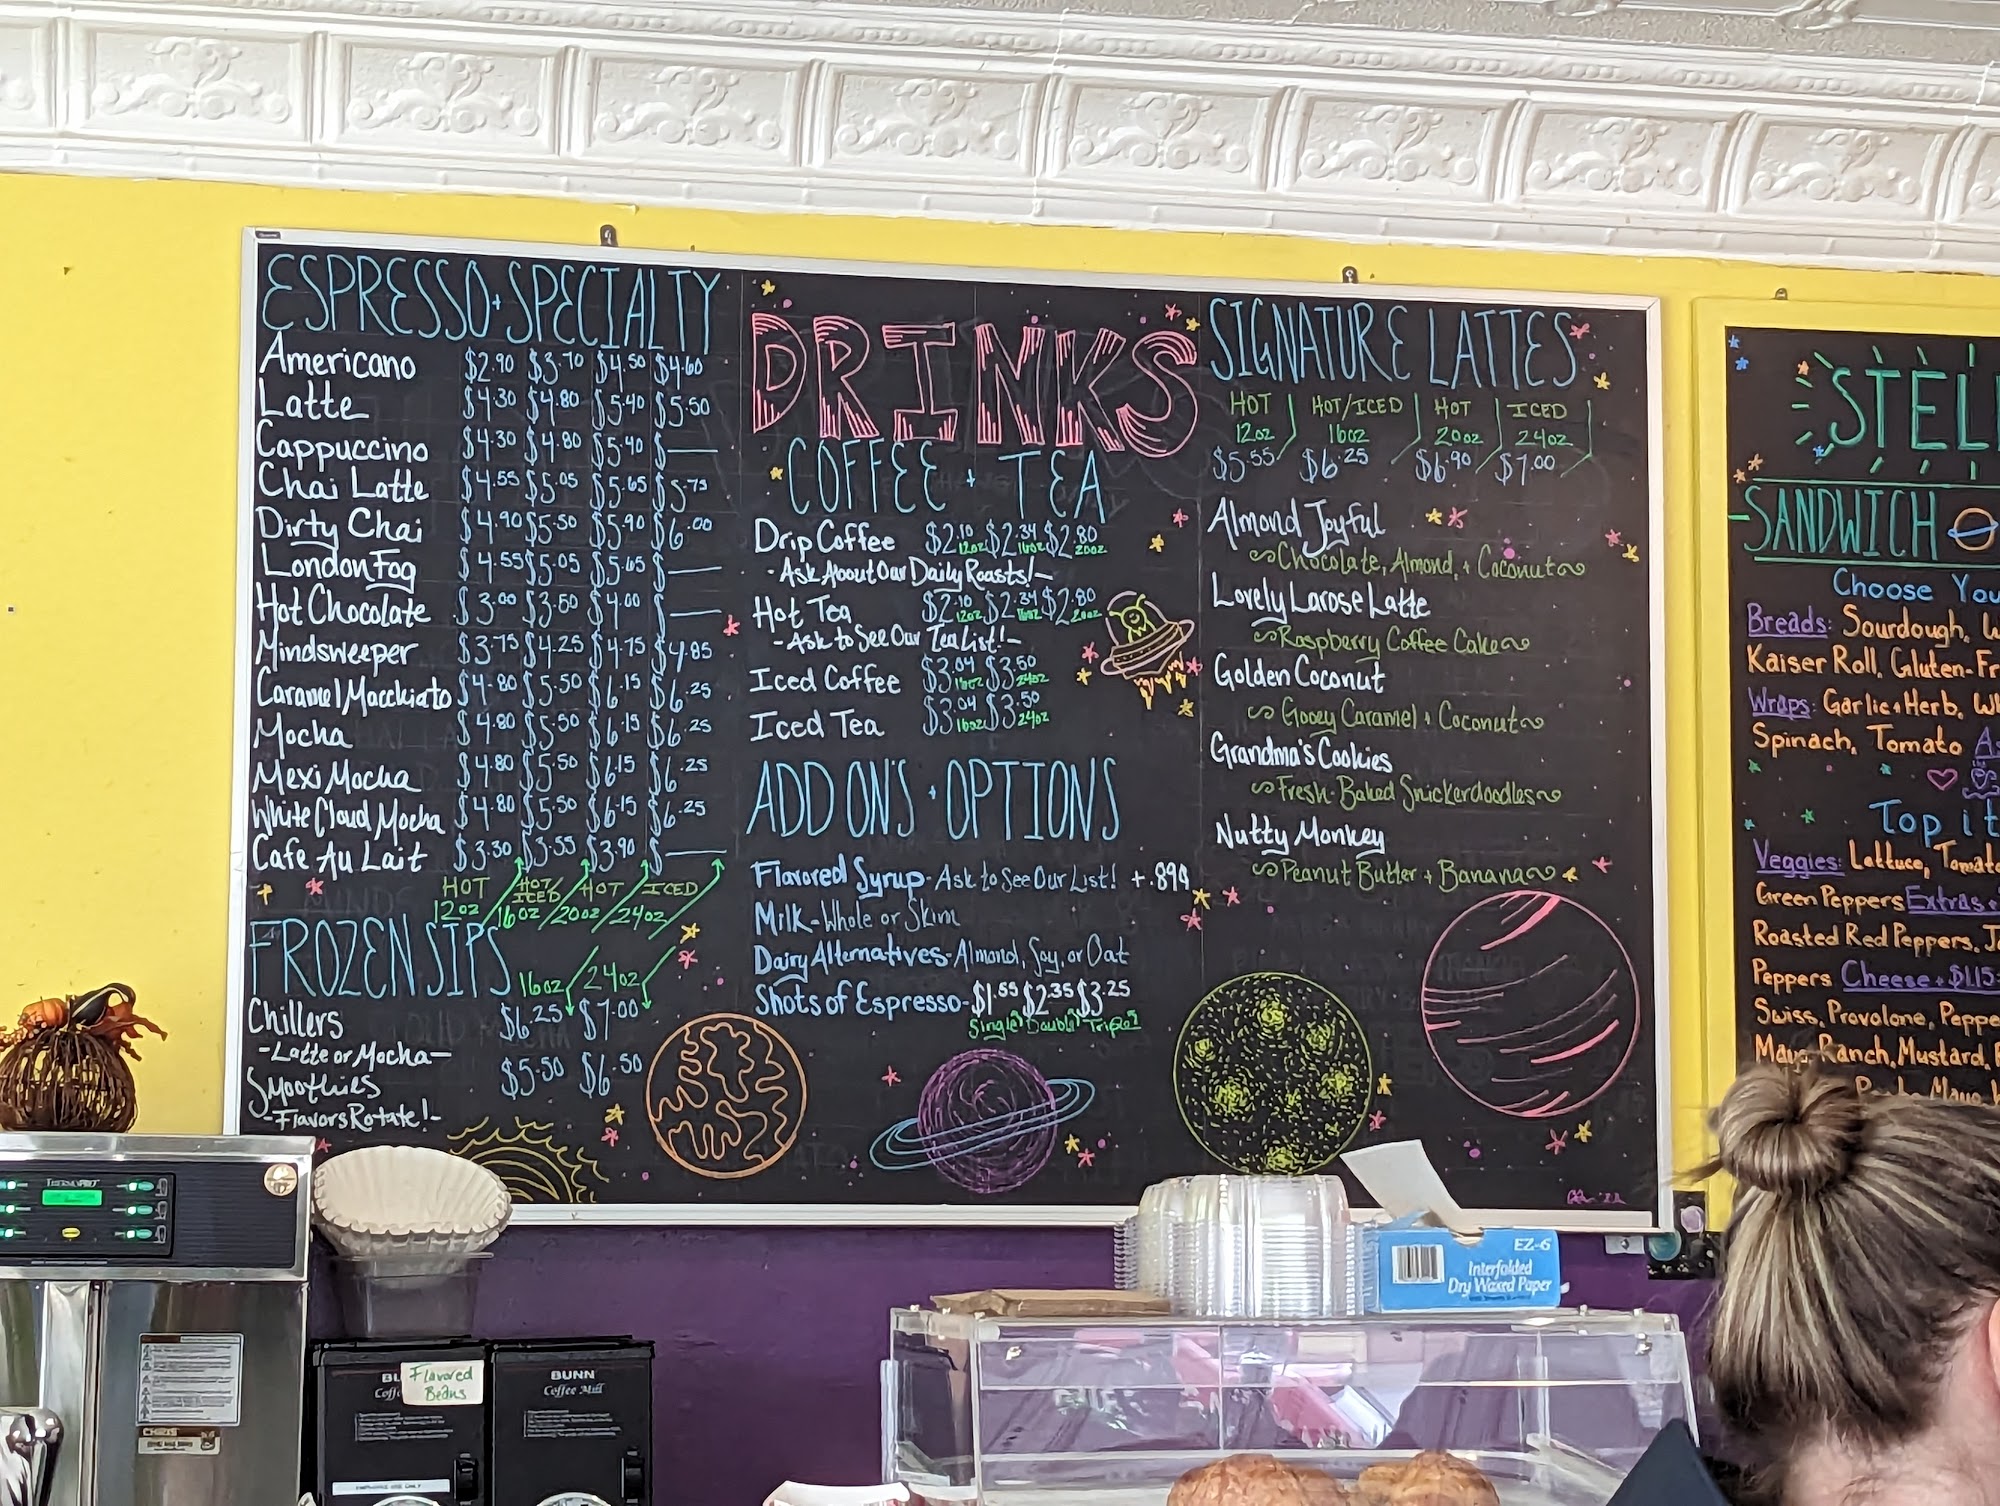 ESPRESSO + SPECIALTY
Americano $2.90 $3.70 $4.50 $4.60
Latte $4.30 $4.80 $5.40 $5.50
Cappuccino $4.30 $4.80 $5.40 $—
Chai Latte $4.55 $5.05 $5.65 $5.75
Dirty Chai $4.90 $5.50 $5.90 $6.00
London Fog $4.55 $5.05 $5.65 $—
Hot Chocolate $3.00 $3.50 $4.00 $—
Mindsweeper $3.75 $4.25 $4.75 $4.85
Caramel Macchiato $4.80 $5.50 $6.15 $6.25
Mocha $4.80 $5.50 $6.15 $6.25
Mexi Mocha $4.80 $5.50 $6.15 $6.25
White Cloud Mocha $4.80 $5.50 $6.15 $6.25
Cafe Au Lait $3.30 $3.55 $3.90 $—
HOT HOT/ICED HOT ICED
12oz 16oz 20oz 24oz
FROZEN SIPS 16oz 24oz
Chillers $6.25 $7.00
-Latte or Mocha-
Smoothies $5.50 $6.50
-Flavors Rotate!-
DRINKS
COFFEE + TEA
Drip Coffee $2.10 12oz $2.34 16oz $2.80 20oz
-Ask About Our Daily Roasts!-
Hot Tea $2.10 12oz $2.34 16oz $2.80 20oz
-Ask to See Our Tea List!-
Iced Coffee $3.04 16oz $3.50 24oz
Iced Tea $3.04 16oz $3.50 24oz
ADD ON'S + OPTIONS
Flavored Syrup - Ask to See Our List! +.89¢
Milk - Whole or Skim
Dairy Alternatives - Almond, Soy, or Oat
Shots of Espresso - $1.55 $2.35 $3.25
Single Double Triple
SIGNATURE LATTES
HOT HOT/ICED HOT ICED
12oz 16oz 20oz 24oz
$5.55 $6.25 $6.90 $7.00
Almond Joyful
Chocolate, Almond, + Coconut
Lovely Larose Latte
Raspberry Coffee Cake
Golden Coconut
Gooey Caramel + Coconut
Grandma's Cookies
Fresh-Baked Snickerdoodles
Nutty Monkey
Peanut Butter + Banana
STELL
SANDWICH
Choose You
Breads: Sourdough, W
Kaiser Roll, Gluten-Fr
Wraps: Garlic + Herb, Wh
Spinach, Tomato
Top it
Veggies: Lettuce, Tomato
Green Peppers Extras
Roasted Red Peppers, Ja
Peppers Cheese + $1.15
Swiss, Provolone, Peppe
Mayo, Ranch, Mustard,
Mayo
Flavored
Beans
BUNN
Coffee Mill
EZ-6
Interfolded
Dry Waxed Paper